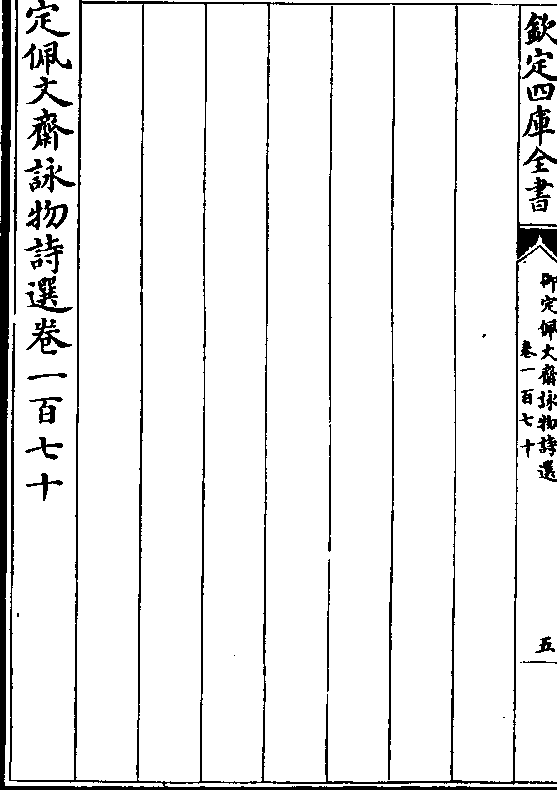 欽定四庫全書
御定佩文齋詠物詩選
卷一百七十
五
定佩文齋詠物詩選卷一百七十